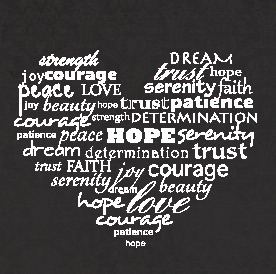 strength DREAM
joy courage trust hope
peace LOVE serenity faith
joy beauty hope trust patience
courage strength DETERMINATION
patience peace HOPE serenity
dream determination trust
trust FAITH joy courage
serenity dream beauty
hope love
courage
patience
hope